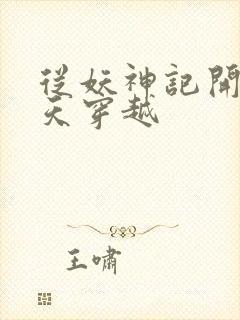 從妖神記開
天穿越
王嘯